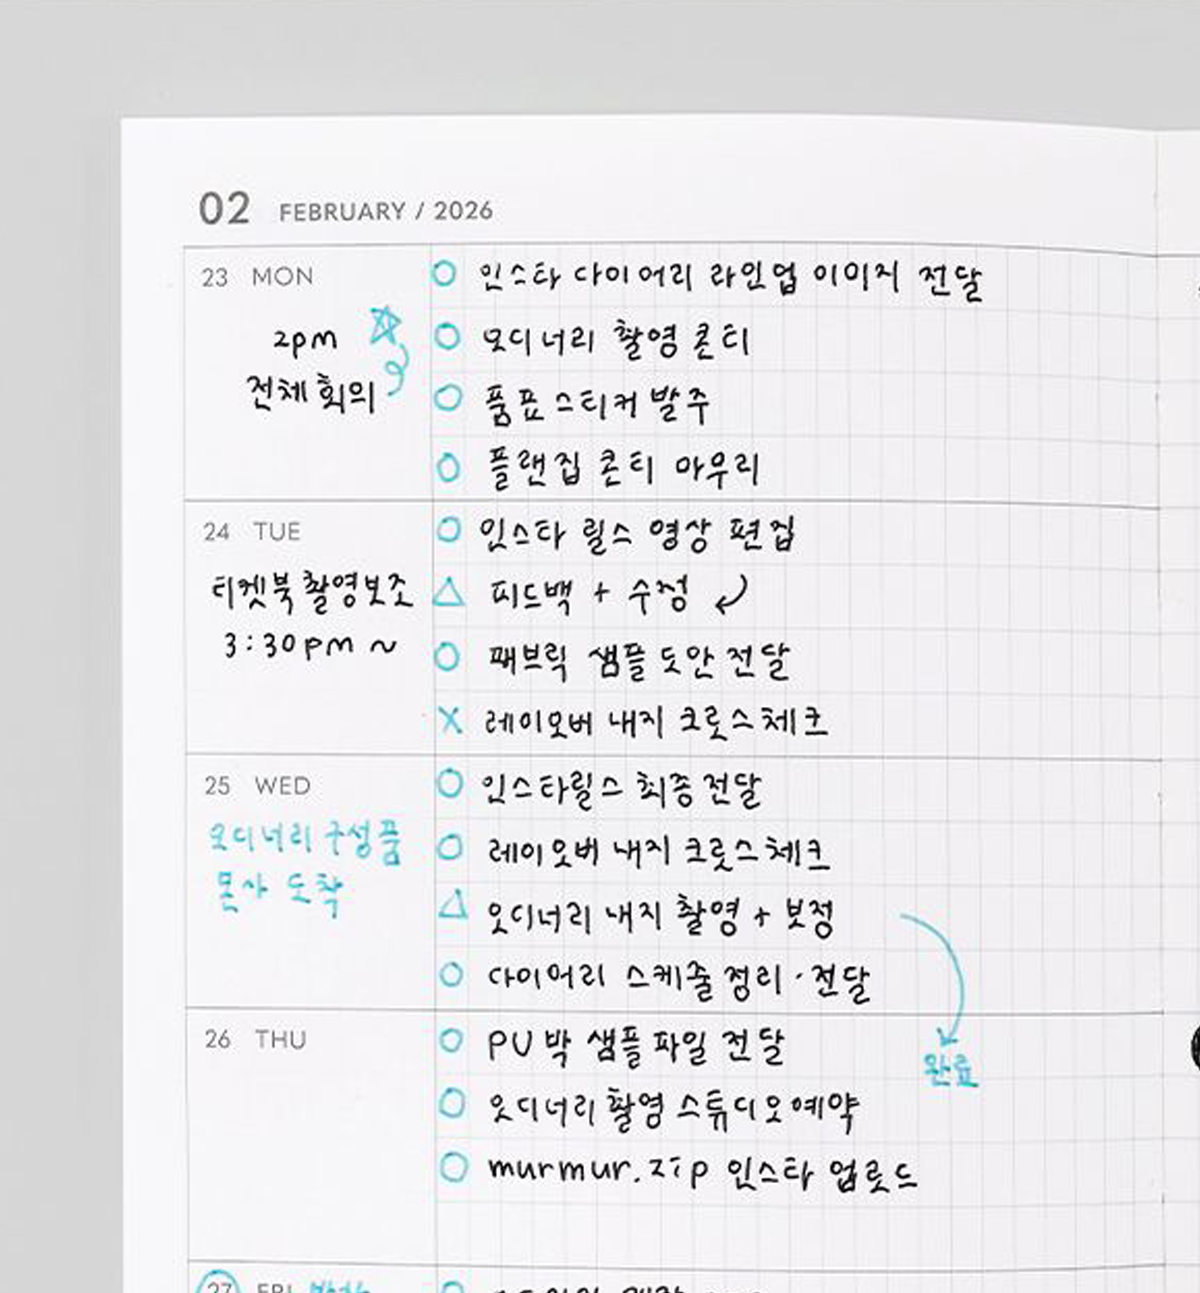 02 FEBRUARY / 2026
23 MON
2pm
전체 회의
인스타 다이어리 라인업 이미지 전달
오디너리 촬영 콘티
품표 스티커 발주
플랜집 콘티 마무리
24 TUE
티켓북 촬영보조
3:30pm ~
인스타 릴스 영상 편집
피드백 + 수정
패브릭 샘플 도안 전달
레이오버 내지 크로스체크
25 WED
오디너리 구성품
도착
인스타릴스 최종 전달
레이오버 내지 크로스체크
오디너리 내지 촬영 + 보정
다이어리 스케줄 정리·전달
완료
26 THU
PU 박 샘플 파일 전달
오디너리 촬영 스튜디오 예약
murmur.zip 인스타 업로드
27 FRI